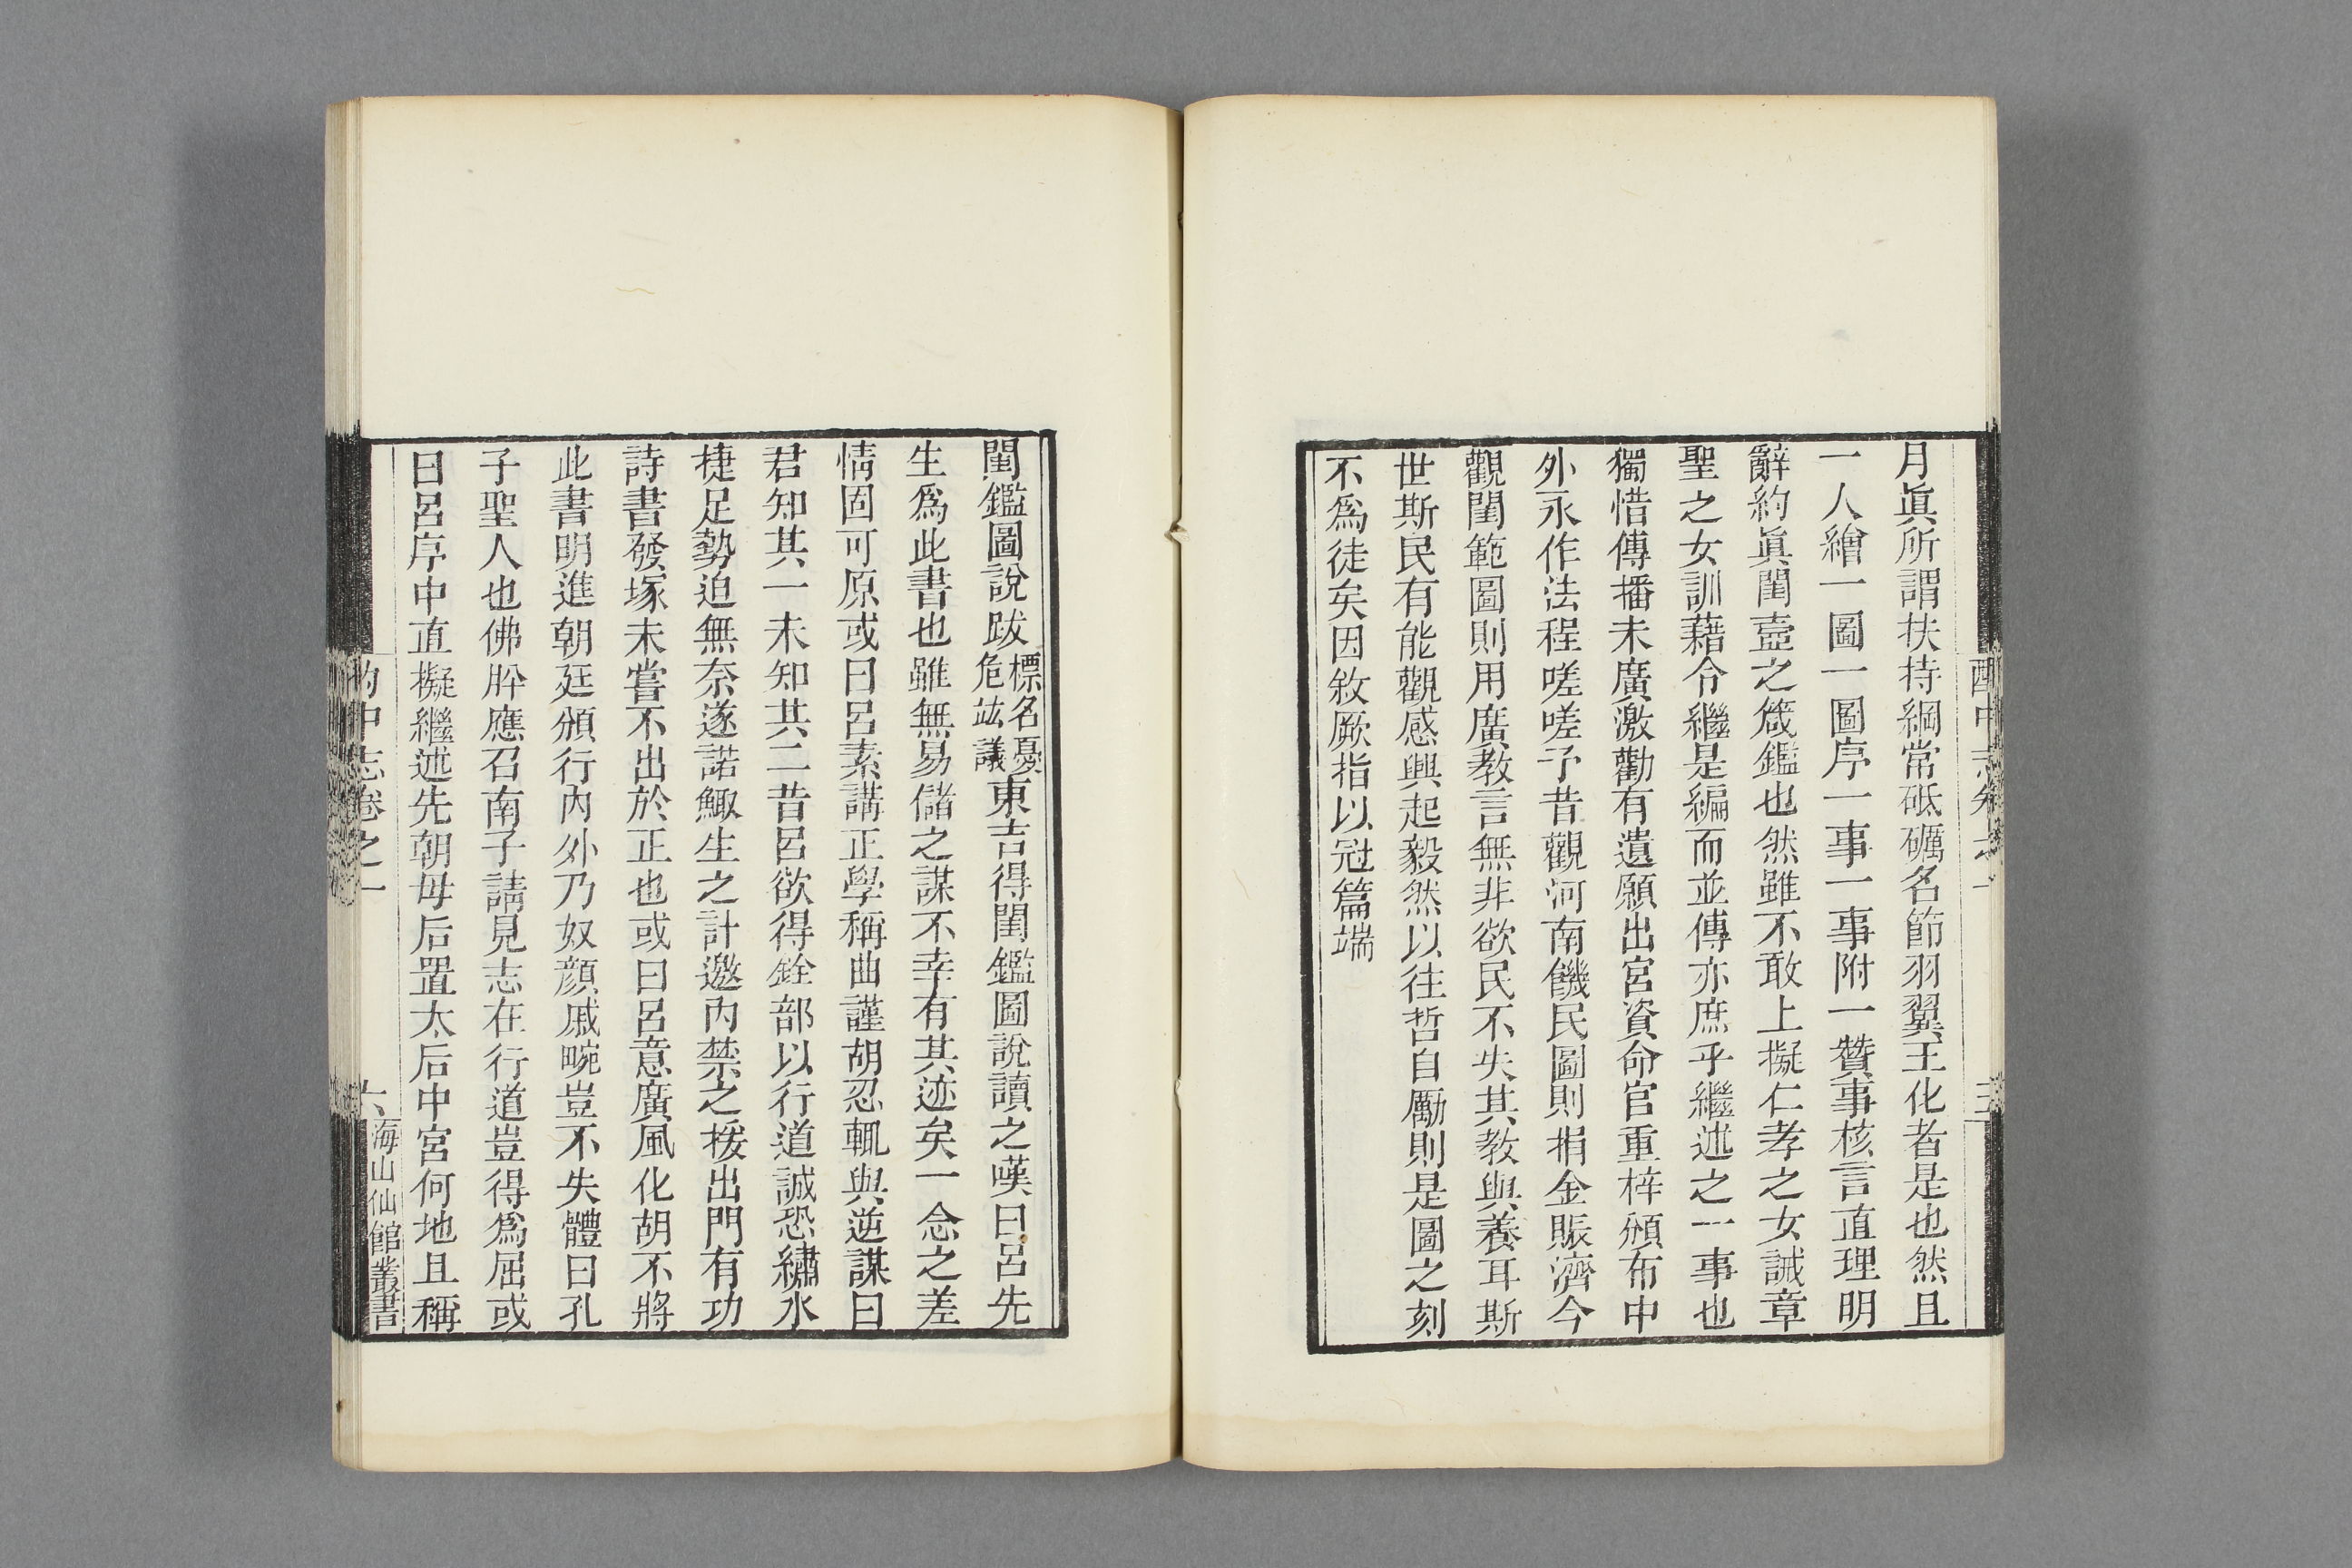 月眞所謂扶持綱常砥礪名節羽翼王化者是也然且
一人繪一圖一圖序一事一事附一贊事核言直理明
辭約眞閨壼之箴鑑也然雖不敢上擬仁孝之女誡章
聖之女訓藉令繼是編而並傳亦庶乎繼述之一事也
獨惜傳播未廣激勸有遺願出宮資命官重梓頒布中
外永作法程嗟嗟予昔觀河南饑民圖則捐金賑濟今
觀閨範圖則用廣教言無非欲民不失其教與養耳斯
世斯民有能觀感興起毅然以往哲自勵則是圖之刻
不爲徒矣因敘厥指以冠篇端
閨鑑圖說跋
標名憂
危竑議
東吉得閨鑑圖說讀之嘆曰呂先
生爲此書也雖無易儲之謀不幸有其迹矣一念之差
情固可原或曰呂素講正學稱曲謹胡忍輒與逆謀曰
君知其一未知其二昔呂欲得銓部以行道誠恐繡水
捷足勢迫無奈遂諾鯫生之計邀內禁之援出門有功
詩書發塚未嘗不出於正也或曰呂意廣風化胡不將
此書明進朝廷頒行內外乃奴顏戚畹豈不失體曰孔
子聖人也佛肸應召南子請見志在行道豈得爲屈或
曰呂序中直擬繼述先朝母后置太后中宮何地且稱
酌中志卷之一
六
海山仙館叢書